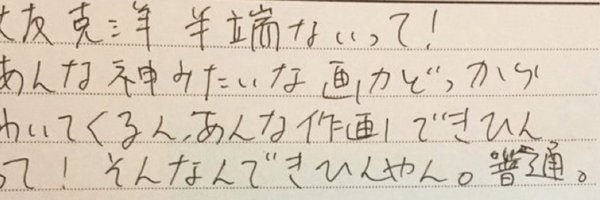 大友克洋 半端ないって!
あんな神みたいな画がどっから
わいてくるん、あんな作画できひん
って! そんなんできひんやん。普通。